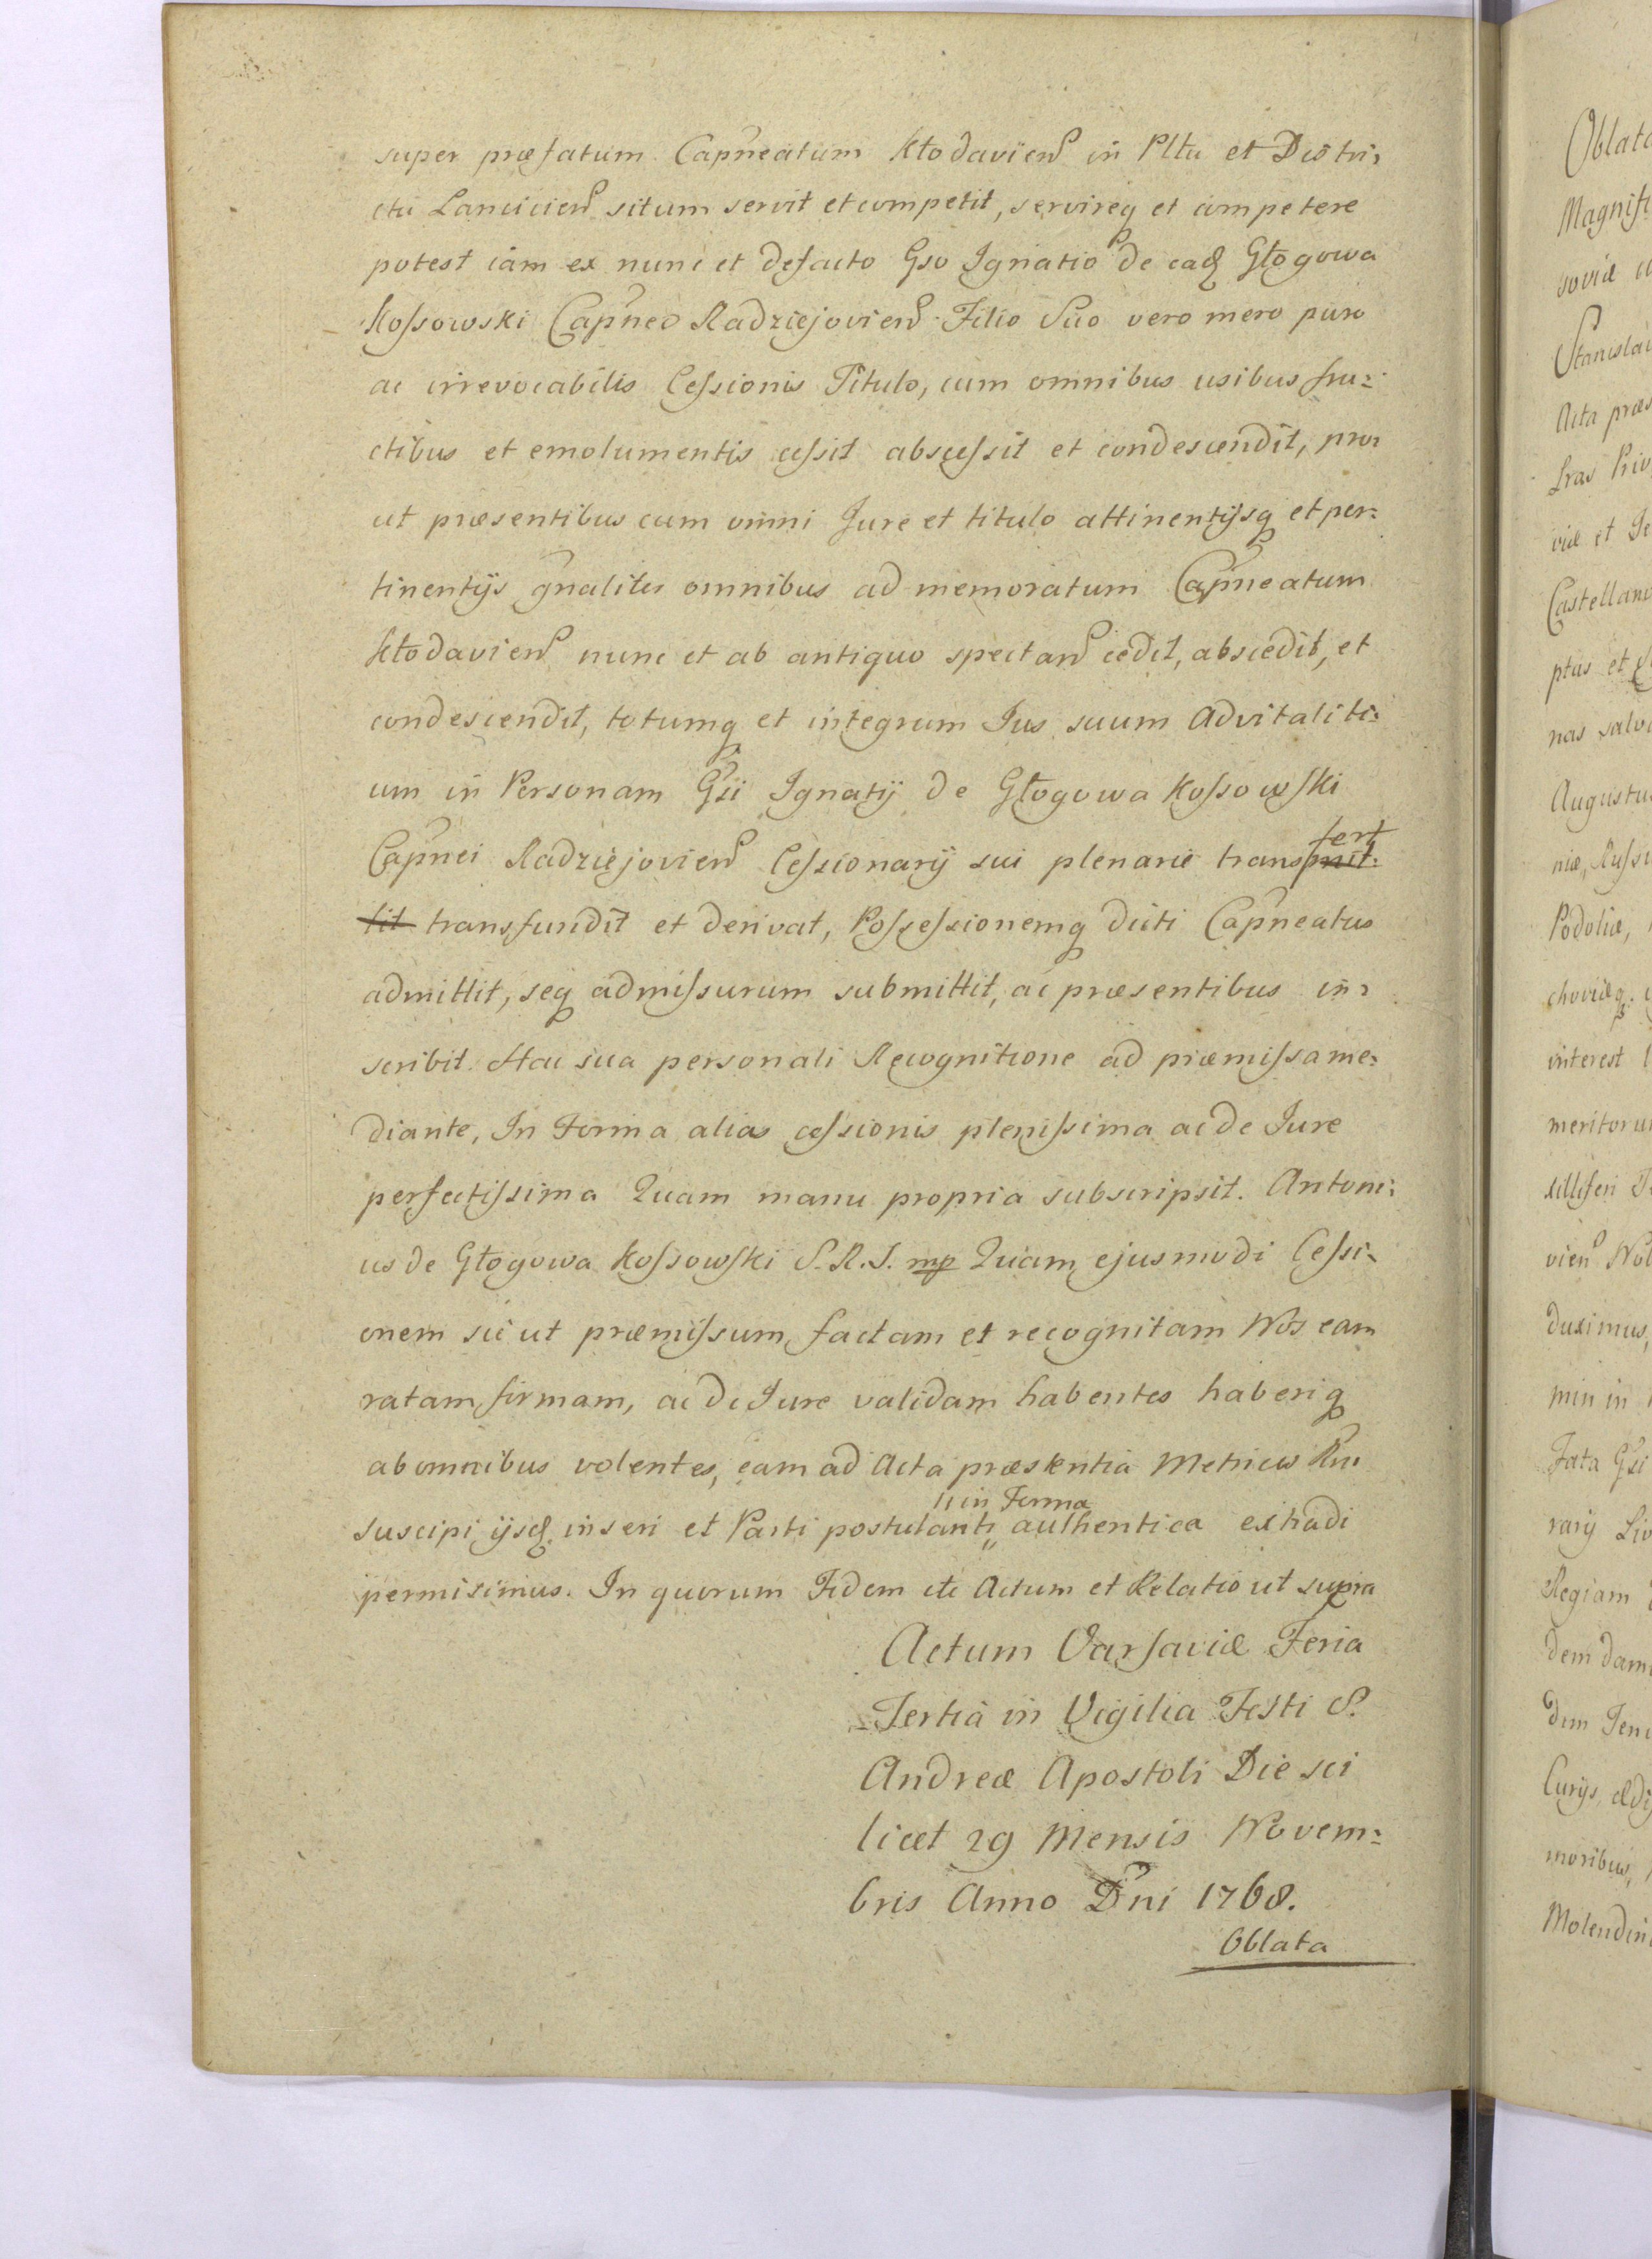 super præfatum Capneatum Kłodavien in Pltu et Distri:
ctu Lancicien situm servit et competit, servireq et competere
potest iam ex nunc et defacto Gso Ignatio de eadq Głogowa
Kossowski Capneo Radziejovien Filio Suo vero mero puro
ac irrevocabilis Cessionis Titulo, cum omnibus usibus fru:
ctibus et emolumentis cessit abscessit et condescendit, pro:
ut præsentibus cum omni Jure et titulo attinentijsq et per:
tinentijs gnaliter omnibus ad memoratum Capneatum
Kłodavien nunc et ab antiquo spectan cedit, abscedit, et
condescendit, totumq et integrum Jus suum advitaliti:
um in Personam Gsi Ignatij de Głogowa Kossowski
Capnei Radziejovien Cessionarij sui plenarie transmit: fert
tit transfundit et derivat, Possessionemq dicti Capneatus
admittit, seq admissurum submittit, ac præsentibus in:
scribit. Hac sua personali Recognitione ad præmissa me:
diante, In Forma alias cessionis plenissima ac de Jure
perfectissima Quam manu propria subscripsit. Antoni:
us de Głogowa Kossowski S. R. S. mp Quam ejusmodi Cessi:
onem sic ut præmissum factam et recognitam Nos eam
ratam firmam, ac de Jure validam habentes haberiq
ab omnibus volentes, eam ad Acta præsentia Metrices Rni
in Forma
suscipi ijsq inseri et Parti postulanti authentica extradi
permisimus. In quorum Fidem etc Actum et Relatio ut supra
Actum Varsaviæ Feria
Tertia in Vigilia Festi S.
Andreæ Apostoli Die sci
licet 29 Mensis Novem:
bris Anno Dni 1768.
Oblata
Oblata
Magnifi
soviæ
Stanislai
Acta præs
Lras Priv
viæ et
Castellano
ptas et
nas salv
Augustu
niæ, Russi
Podoliæ,
choviæq
interest
meritoru
xilliferi
vien
duximus,
min in
Fata Gsi
rarij
Regiam
dem dam
dum Tene
Curijs, ædi
moribus,
Molendin